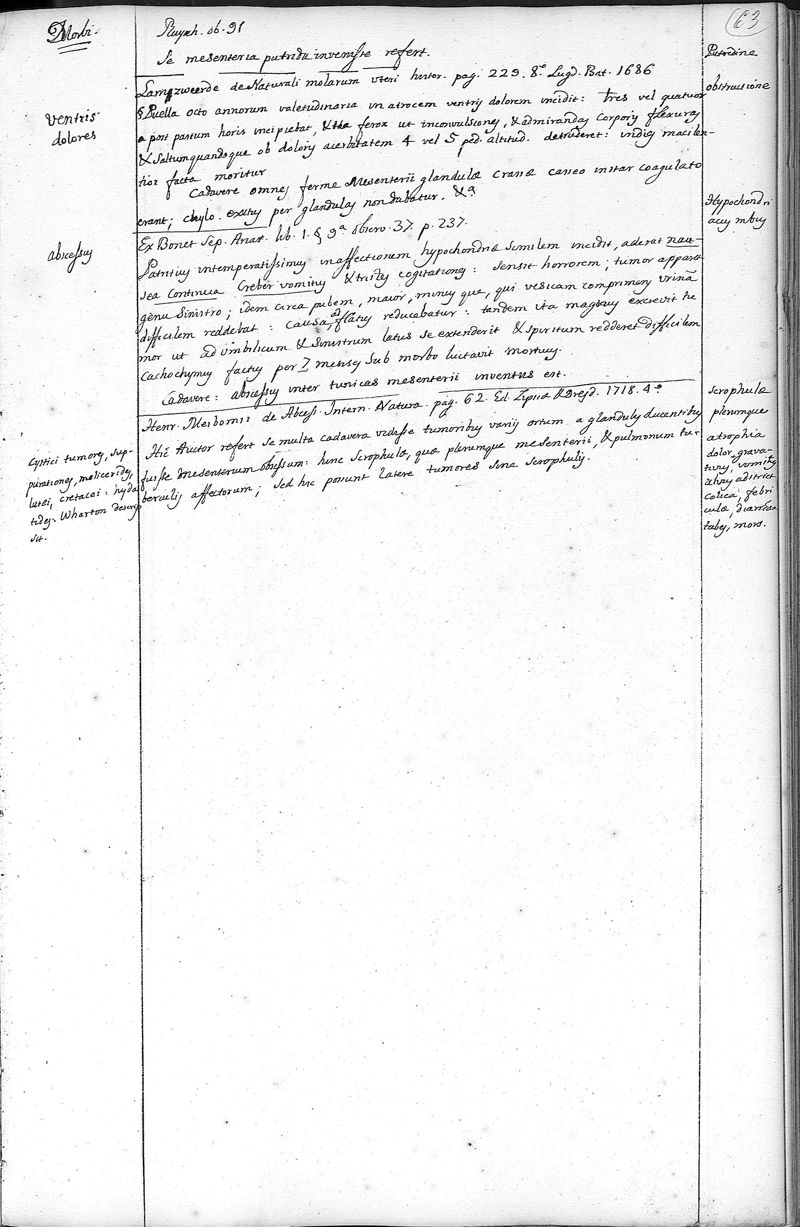 63
Morbi.
Ruysch. ob. 91
Se mesenteria putrida invenisse refert.
Putredine
Lamzweerde de Naturali molarum uteri histor. pag. 229. 8.° Lugd. Bat. 1686
obstructione
ventris
dolores
§ Puella octo annorum valetudinaria in atrocem ventris dolorem incidit: tres vel quatuor
a post pastum horis incipiebat, & ita ferox ut in convulsiones, & admirandas corporis flexuras
& saltum quandoque ob doloris acerbitatem 4 vel 5 ped. altitud. detruderet: indies macilen-
tior facta moritur
Cadavere omnes ferme Mesenterii glandulæ crassæ caseo instar coagulato
erant; chylo exitus per glandulas non dabatur. &ª
Hypochondri
acus mbus
Ex Bonet Sep. Anat. lib. 1. § 9ª observ. 37. p. 237.
abscessus
Patritius intemperatissimus in affectionem hypochondriæ similem incidit, aderat nau-
sea continua creber vomitus & tristes cogitationes: sensit horrorem; tumor apparu
genu sinistro; idem circa pubem, maior, minus que, qui vesicam comprimens urinā
difficilem reddebat: causa, ad flatus reducebatur: tandem ita magnus excrevit tu
mor ut ad umbilicum & sinistrum latus se extenderit & spiritum redderet difficilem
Cachochymus factus per 7 menses sub morbo luctavit mortuus.
Cadavere: abscessus inter tunicas mesenterii inventus est.
Henr. Meibomii de Abcess. Intern. Natura. pag. 62. Ed. Lipsiæ & Dresd. 1718. 4°
scrophulæ
plerumque
Cystici tumores, sup-
purationes, melicerides,
lutei, cretacei: hyda
tides. Wharton descrip
sit.
Hic Auctor refert se multa cadavera vedisse tumoribus variis ortum a glandulis ducentibus
fuisse mesenterium obsessum: hinc scrophulæ, quæ plerumque mesenterii, & pulmonum tu-
berculis affectorum; sed hic possunt latere tumores sine scrophulis.
atrophia
dolor grava-
tivus, vomitus
alvus adstrict
colica, febri
culæ, diarrhæa
tabes, mors.